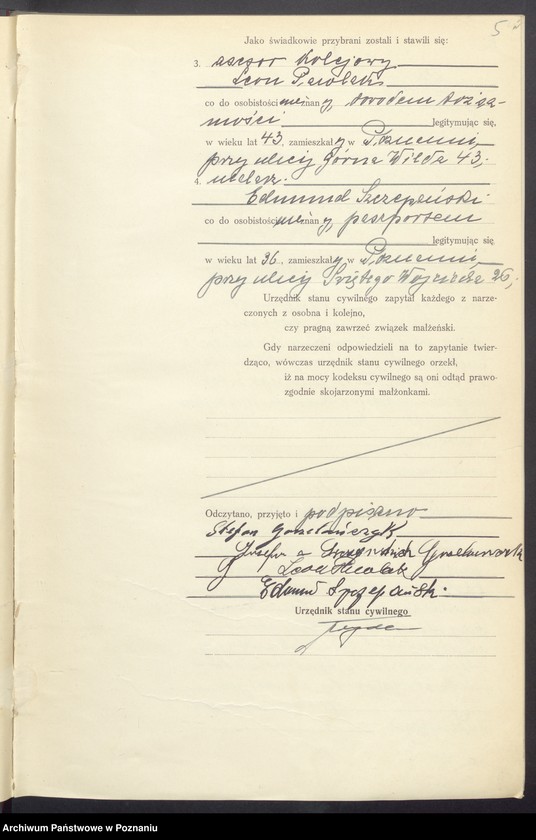 5
Jako świadkowie przybrani zostali i stawili się:
3. asesor kolejowy
Leon
co do osobistości nieznany, dowodem tożsa-
mości legitymując się,
w wieku lat 43, zamieszkały w Poznaniu,
przy ulicy Górna Wilda 43;
4. malarz
Edmund Szczepański
co do osobistości nieznany, paszportem
legitymując się
w wieku lat 36, zamieszkały w Poznaniu,
przy ulicy Świętego Wojciecha 26;
Urzędnik stanu cywilnego zapytał każdego z narze-
czonych z osobna i kolejno,
czy pragną zawrzeć związek małżeński.
Gdy narzeczeni odpowiedzieli na to zapytanie twier-
dząco, wówczas urzędnik stanu cywilnego orzekł,
iż na mocy kodeksu cywilnego są oni odtąd prawo-
zgodnie skojarzonymi małżonkami.
Odczytano, przyjęto i podpisano
Stefan
Józefa
Leon
Edmund Szczepański
Urzędnik stanu cywilnego
Archiwum Państwowe w Poznaniu